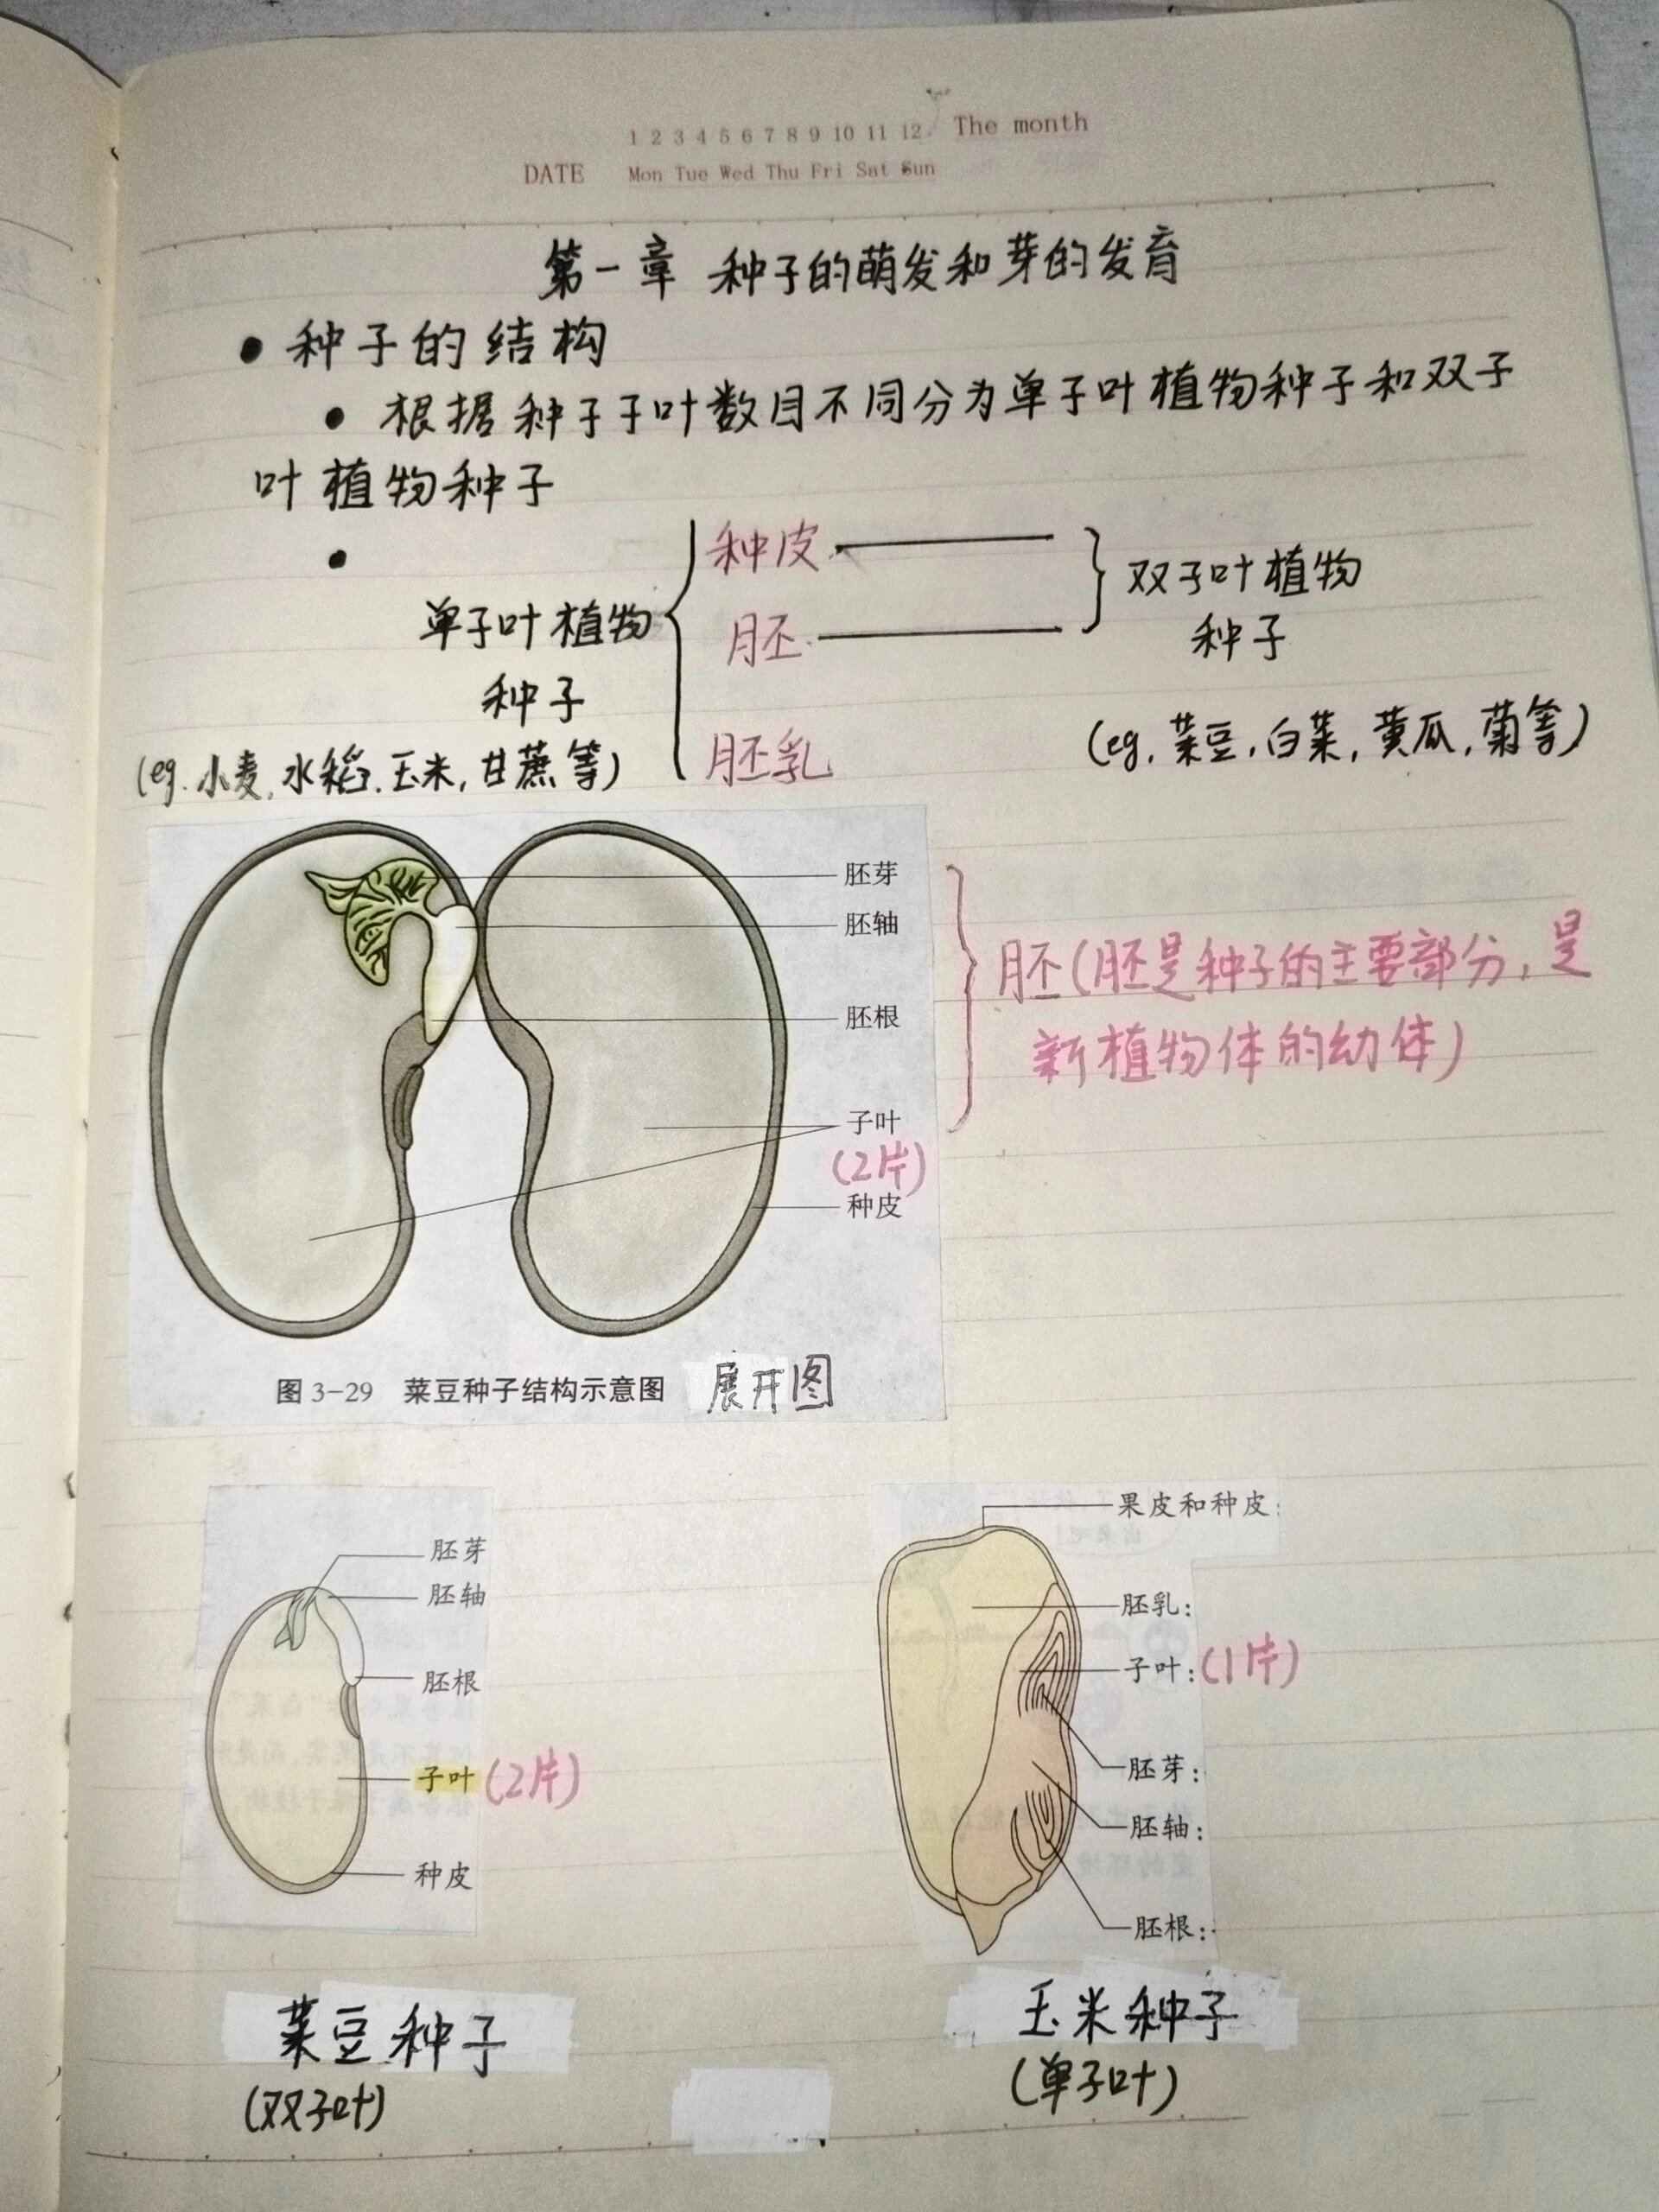 1 2 3 4 5 6 7 8 9 10 11 12 The month
DATE Mon Tue Wed Thu Fri Sat Sun
第一章 种子的萌发和芽的发育
• 种子的结构
• 根据种子子叶数目不同分为单子叶植物种子和双子
叶植物种子
•
种皮
双子叶植物
单子叶植物
胚
种子
种子
(eg. 小麦, 水稻, 玉米, 甘蔗等)
胚乳
(eg, 菜豆, 白菜, 黄瓜, 菊等)
胚芽
胚轴
胚(胚是种子的主要部分, 是
新植物体的幼体)
胚根
子叶
(2片)
种皮
图 3-29 菜豆种子结构示意图 展开图
胚芽
胚轴
胚根
子叶(2片)
种皮
菜豆种子
(双子叶)
果皮和种皮:
胚乳:
子叶:(1片)
胚芽:
胚轴:
胚根:
玉米种子
(单子叶)